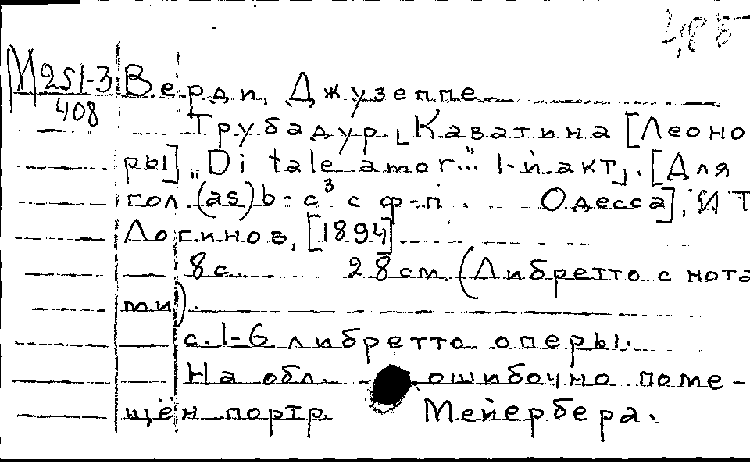 4,85
М 251-3 Верди, Джузеппе
408
Трубадур. [Каватина [Леоно
ры] „Di tale amor..." 1-й акт]. [Для
гол. (as) b-c³ с ф-п. Одесса], И Т
Логинов, [1894]
8 с. 28 см. (Либретто с нота
ми).
с. 1-6 либретто оперы.
На обл. ошибочно поме-
щён портр. Мейербера.